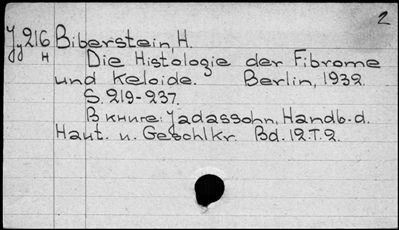 2
Jy216 Biberstein, H.
H Die Histologie der Fibrome
und Keloide. Berlin, 1932.
S. 219-237.
В книге: Jadassohn, Handb. d.
Haut. u. Geschlkr. Bd. 12.T.2.